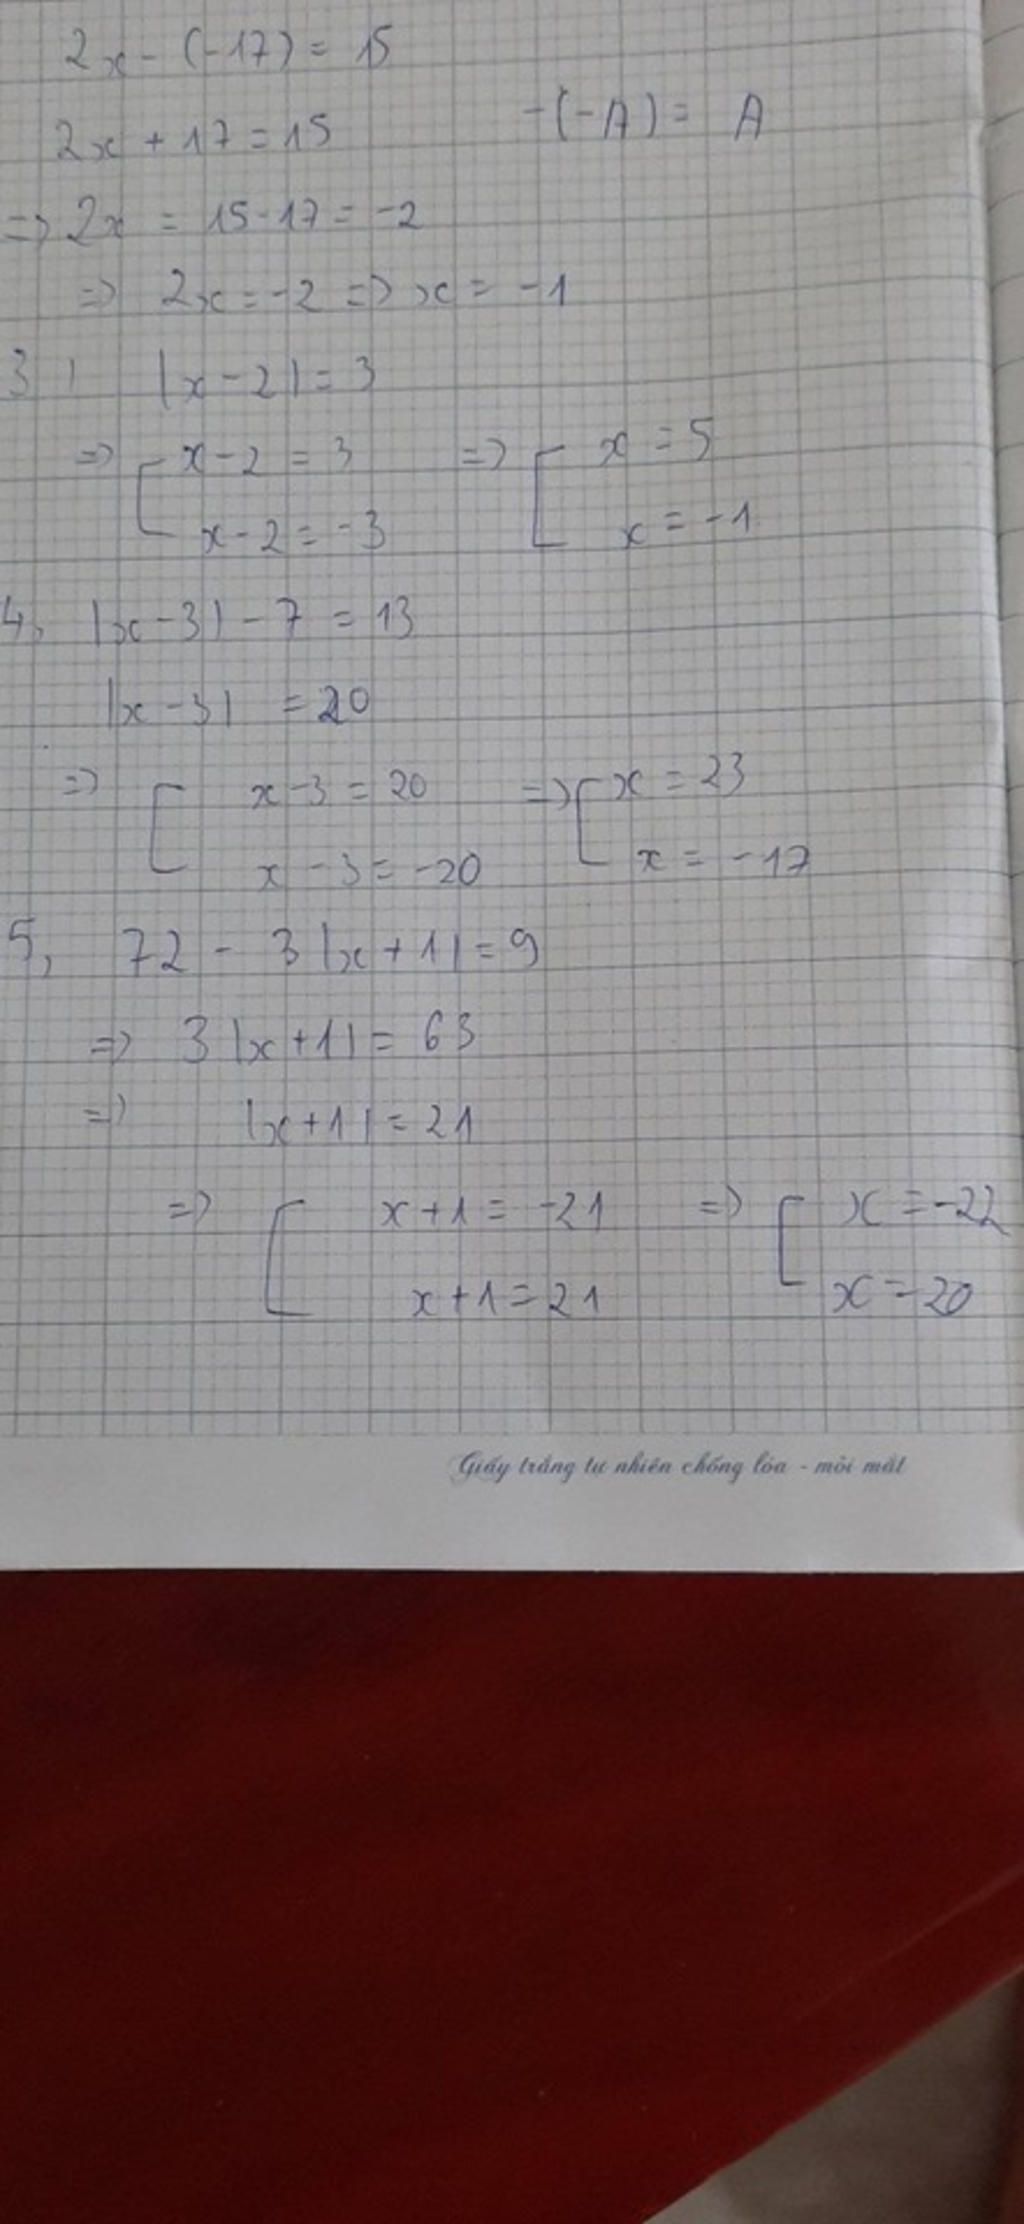 2x - (-17) = 15
2x + 17 = 15    -(-A) = A
=> 2x = 15-17 = -2
=> 2x = -2 => x = -1
3) |x - 2| = 3
=> [ x - 2 = 3    => [ x = 5
x - 2 = -3    x = -1
4, |x - 3| - 7 = 13
|x - 3| = 20
=> [ x - 3 = 20    => [ x = 23
x - 3 = -20    x = -17
5, 72 - 3|x + 1| = 9
=> 3|x + 1| = 63
=> |x + 1| = 21
=> [ x + 1 = -21    => [ x = -22
x + 1 = 21    x = 20
Giấy trắng tự nhiên chống lóa - mỏi mắt